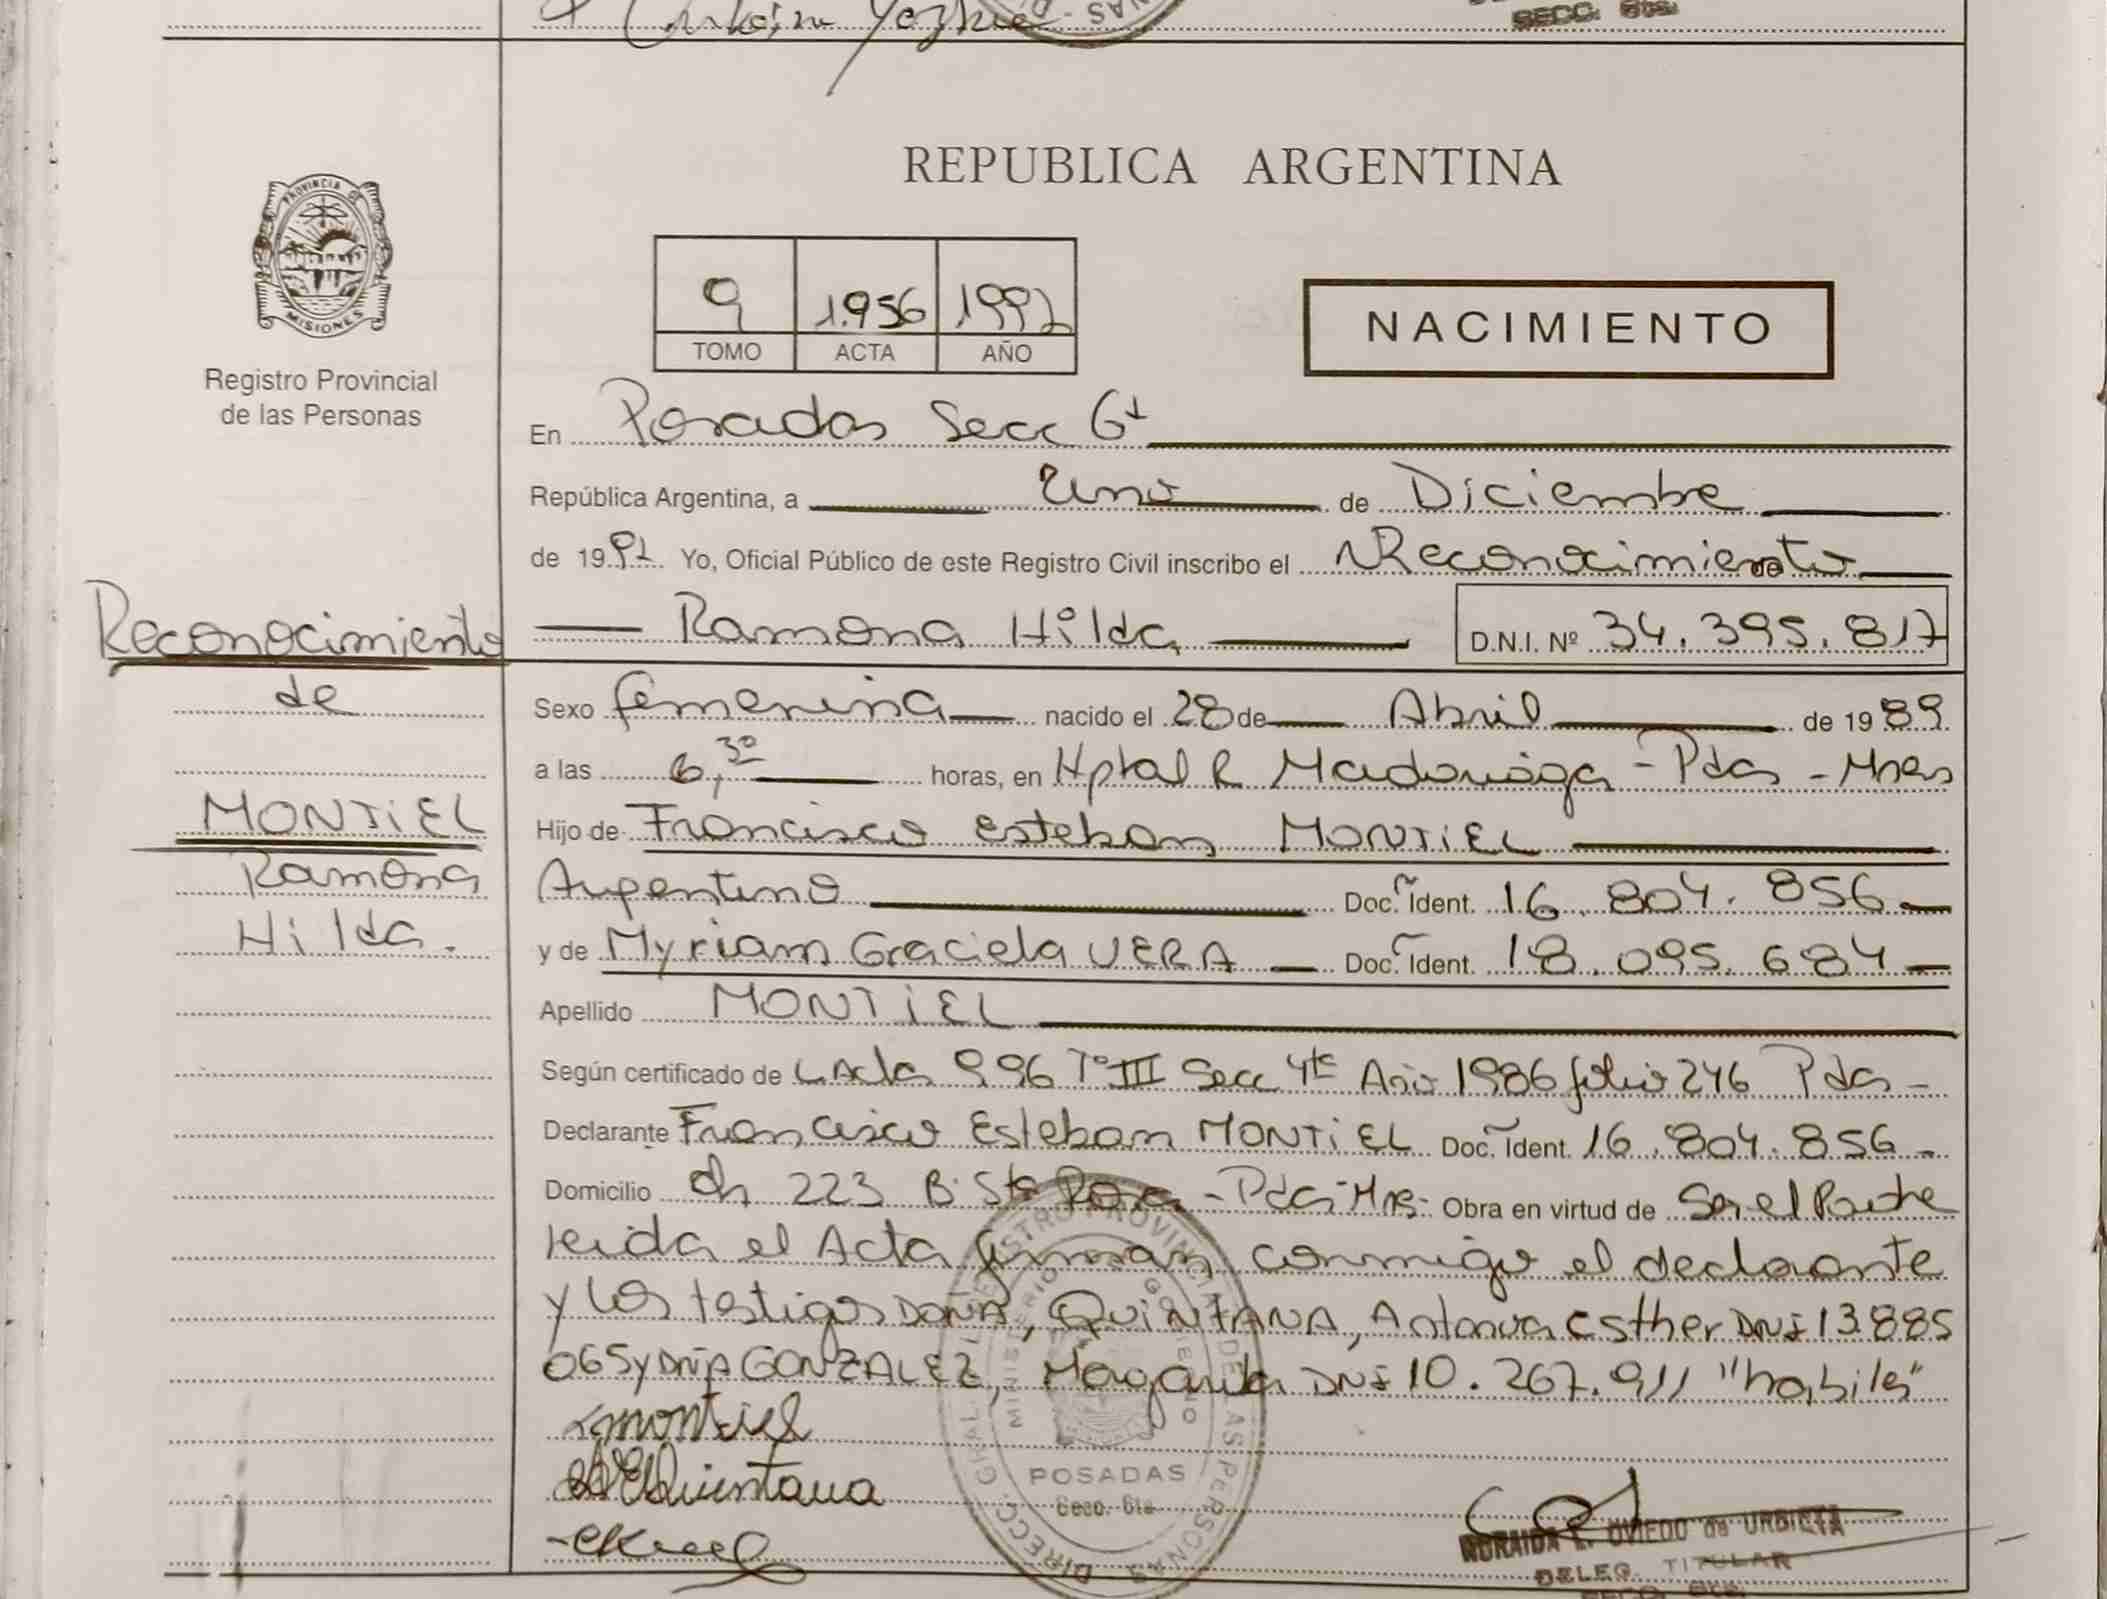 SECC. 6ta.
REPUBLICA ARGENTINA
PROVINCIA DE MISIONES
Registro Provincial
de las Personas
9 1.956 1992
TOMO ACTA AÑO
NACIMIENTO
En Posadas Secc 6ta
República Argentina, a Uno de Diciembre
de 1992 Yo, Oficial Público de este Registro Civil inscribo el Reconocimiento
de
Ramona Hilda D.N.I. Nº 34.395.817
Reconocimiento
de
MONTIEL
Ramona
Hilda.
Sexo femenina nacido el 28 de Abril de 1989
a las 6,30 horas, en Hptal R Madariaga - Pdas - Mnes
Hijo de Francisco Esteban MONTIEL
Argentino Doc. Ident. 16.804.856
y de Myriam Graciela VERA Doc. Ident. 18.095.684
Apellido MONTIEL
Según certificado de L Acta 996 Tº III Secc 4ta Año 1986 folio 246 Pdas
Declarante Francisco Esteban MONTIEL Doc. Ident. 16.804.856
Domicilio Ch 223 B. Sta Rosa - Pdas Mnes Obra en virtud de Ser el Padre
leida el Acta firman conmigo el declarante
y los testigos DOÑA, QUINTANA, Antonia Esther DNI 13.885
065 y DÑA GONZALEZ, Margarita DNI 10.267.911 "habiles"
Montiel
Quintana
DIRECC. GRAL. DEL REGISTRO PROVINCIAL DE LAS PERSONAS
MINISTERIO GOBIERNO
POSADAS
Secc. 6ta
NORAIDA E. OVIEDO de URBIETA
DELEG. TITULAR
SECC. 6ta.